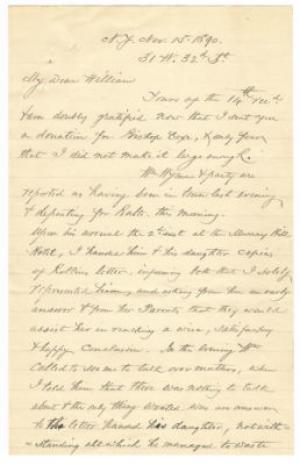 N.Y. Nov. 15th 1890.
31 W. 32d St.
My Dear William
Yours of the 14th recd.
I am doubly gratified now that I sent you
a donation for Bishop & only fear
that I did not make it large enough.
Mr Wyman & party are
reported as having been in town last evening
& departing for Balto. this morning.
Upon his arrival the 2d inst at the Murray Hill
Hotel, I handed him & his daughter copies
of Rollins letter, informing both that I solely
represented him, and asking from him an early
answer & from her Parents that they would
assist her in reaching a wise, satisfactory
& happy Conclusion. In the evening Mr
called to see me to talk over matters, when
I told him that there was nothing to talk
about & the only thing wanted was an answer
to the letter handed his daughter, notwith-
standing all which he managed to waste